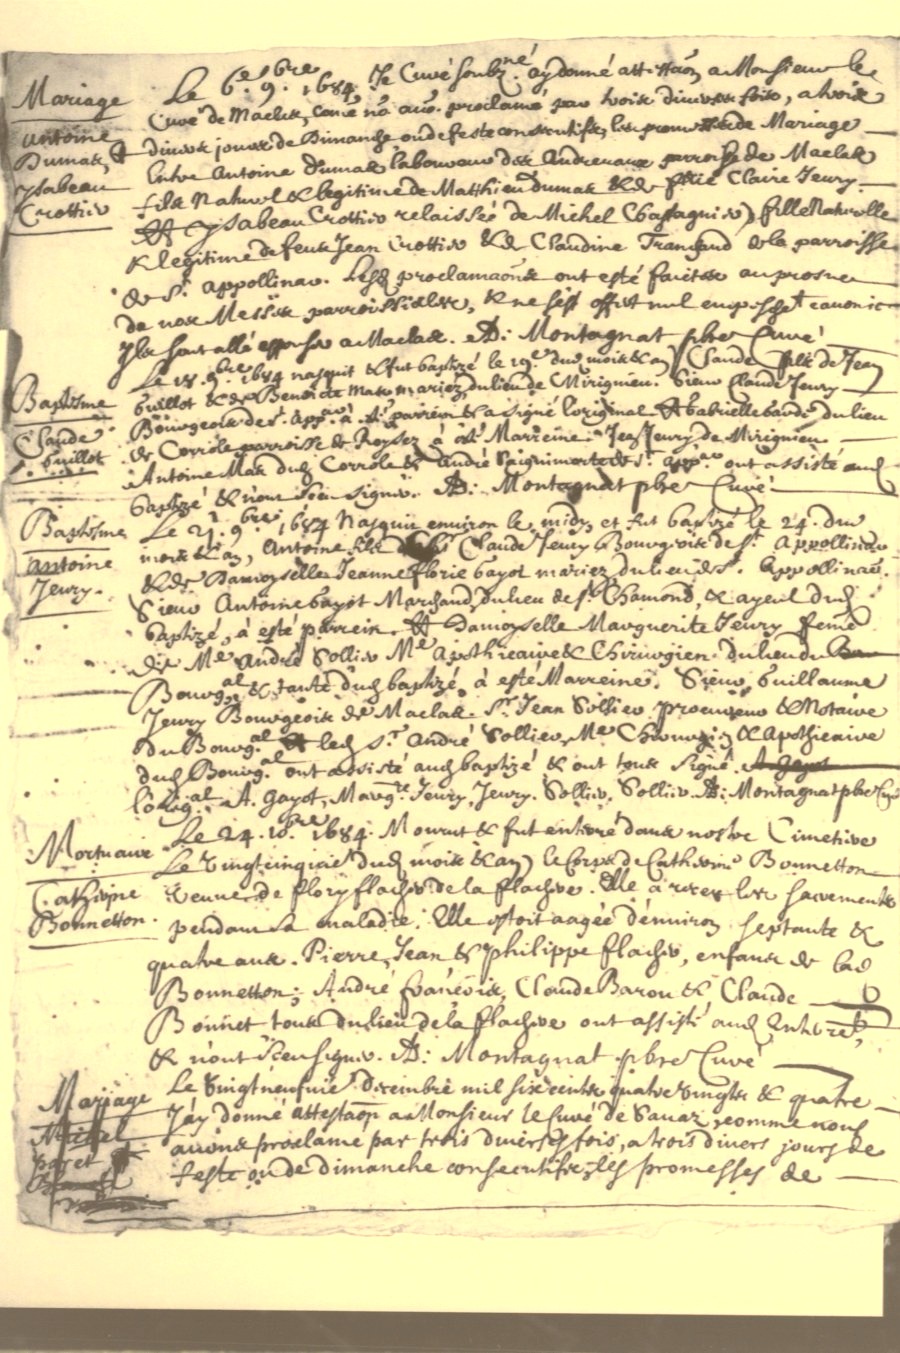 Mariage
Antoine
Dumas, &
Ysabeau
Crottier
Le 6.e 9.bre 1684. Je Curé soubz.né ay donné attestaon a Monsieur le
Curé de Maclas, come no avo. proclamé par trois diverses fois, a trois
divers jours de Dimanche ou de feste consecutifs, les promesses de Mariage
Entre Antoine Dumas, laboureur des Andrevaux parroisse de Maclas
fils Naturel & legitime de Matthieu Dumas & de feüe Claire Jeury.
Et Ysabeau Crottier relaissée de Michel Chastagnier, fille Naturelle
& legitime de feus Jean Crottier & de Claudine Tranchand de la parroisse
de St. Appollinar. Lesd. proclamaons ont esté faites au prosne
de nos Messes parroissiales, & ne s'est offert nul empeschet canonic
Ils sont allé esposer a Maclas. A: Montagnat pbre Curé
Baptisme
Claude
Guillot
Le 18. 9.bre 1684 nasquit & fut baptizé le 19.e du mois & an, Claude fils de Jean
Guillot & de Benoicte Mas mariez, du lieu de Mirignieu. Sieur Claude Jeury
Bourgeois de St. App.ar a esté parrein & a signé l'original Et Gabrielle Gaude du lieu
de Corrole parroisse de Roysez à esté Marreine. Jean Jeury de Mirignieu
Antoine Mas dud. Corrole & André Saignimorte de St. App.ar ont assisté aud.
baptizé & n'ont sceu signer. A: Montagnat pbre Curé
Baptisme
Antoine
Jeury.
Le 21. 9.bre 1684 Nasquit environ le midy et fut baptizé le 24. du
mois & an, Antoine fils Sr Claude Jeury Bourgeois de St. Appollinar
& de Damoyselle Jeanne florie Gayot mariez, du lieu de St. Appollinar.
Sieur Antoine Gayot Marchand, du lieu de St. Chamond, & ayeul dud.
baptizé, à esté parrein. Et Damoyselle Marguerite Jeury feme
de Me. André Sollier Me Apothicaire & Chirurgien du lieu du
Bourg.al & tante dud. baptizé, à esté Marreine. Sieur Guillaume
Jeury Bourgeois de Maclas. Sr. Jean Sollier procureur & Notaire
du Bourg.al & led. Sr. André Sollier, Me Chirurgien & Apothicaire
dud. Bourg.al ont assisté aud. baptizé & ont tous signé. A Gayot
l'orig.al A. Gayot, Marg.te Jeury, Jeury. Sollier. Sollier. A: Montagnat pbre Curé
Mortuaire
Catherine
Bonnetton.
Le 24. 10.bre 1684. Mourut & fut enterré dans nostre Cimetiere
Le vingtcinquie. dud. mois & an, le Corps de Catherine Bonnetton
Veuve de flory flachier de la flachere. Elle à receu les sacrements
pendant sa maladie. Elle estoit aagée d'environ septante &
quatre ans. Pierre, Jean & Philippe flachier, enfans de lad
Bonnetton; André françois, Claude Baron & Claude
Bonnet tous du lieu de la flachere ont assisté aud. Enterret,
& n'ont sceu signer. A: Montagnat pbre Curé
Mariage
Michel
paret
Le vingtneufvie. decembre mil six cents quatre vingts & quatre
J'ay donné attestaon a Monsieur le Curé de Savaz, comme nous
avons proclamé par trois diverses fois, a trois divers jours de
feste ou de dimanche consecutifs, les promesses de